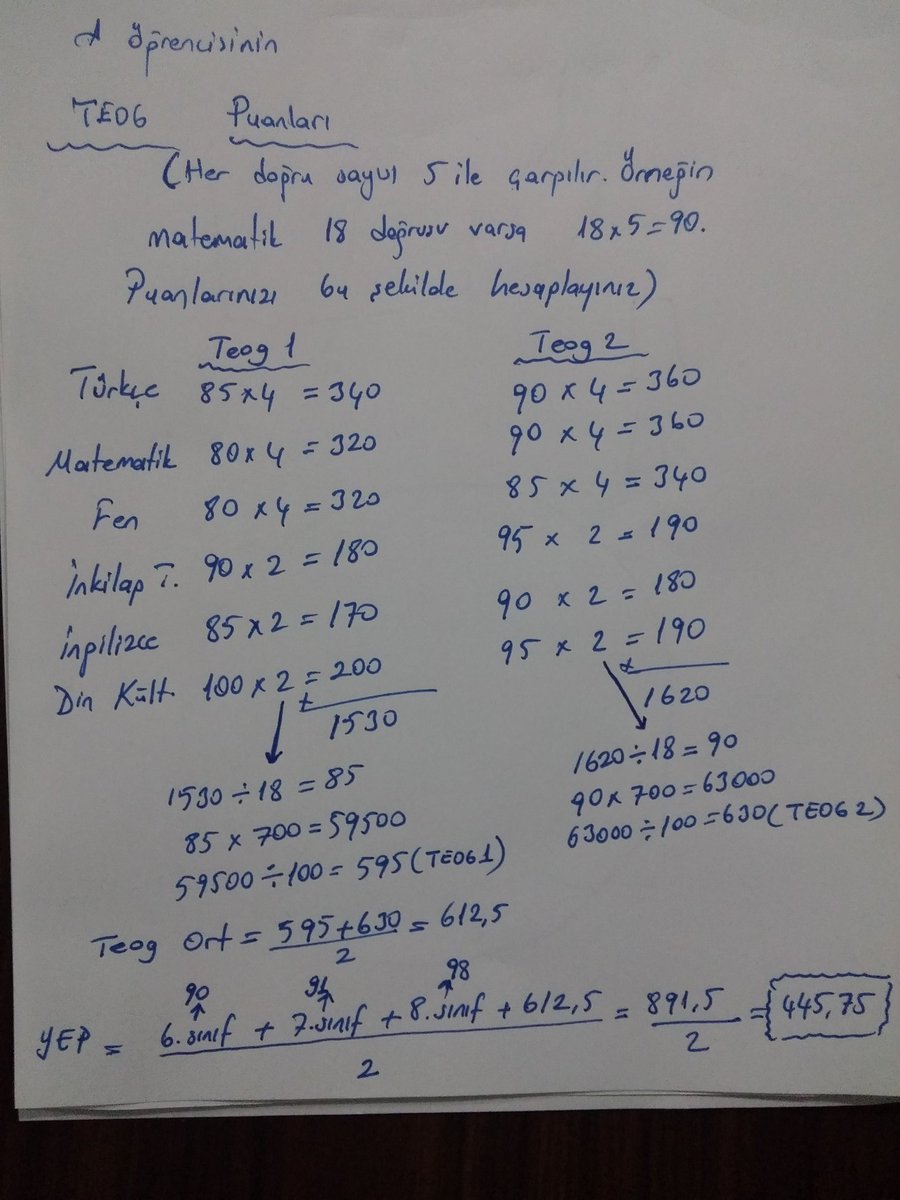 A Öğrencisinin
TEOG Puanları
(Her doğru sayısı 5 ile çarpılır. Örneğin
matematik 18 doğrusu varsa 18x5=90.
Puanlarınızı bu şekilde hesaplayınız)
Teog 1 Teog 2
Türkçe 85x4 = 340 90 x 4 = 360
Matematik 80x4 = 320 90 x 4 = 360
Fen 80 x4 = 320 85 x 4 = 340
İnkilap T. 90x2 = 180 95 x 2 = 190
İngilizce 85x2 = 170 90 x 2 = 180
Din Kült. 100x2 = 200 95 x 2 = 190
+ 1530 + 1620
1530÷18 = 85 1620÷18 = 90
85 x 700 = 59500 90x700 = 63000
59500÷100 = 595 (TEOG1) 63000÷100 = 630 (TEOG 2)
Teog Ort = 595+630 / 2 = 612,5
90 91 98
YEP = 6.sınıf + 7.sınıf + 8.sınıf + 612,5 / 2 = 891,5 / 2 = 445,75